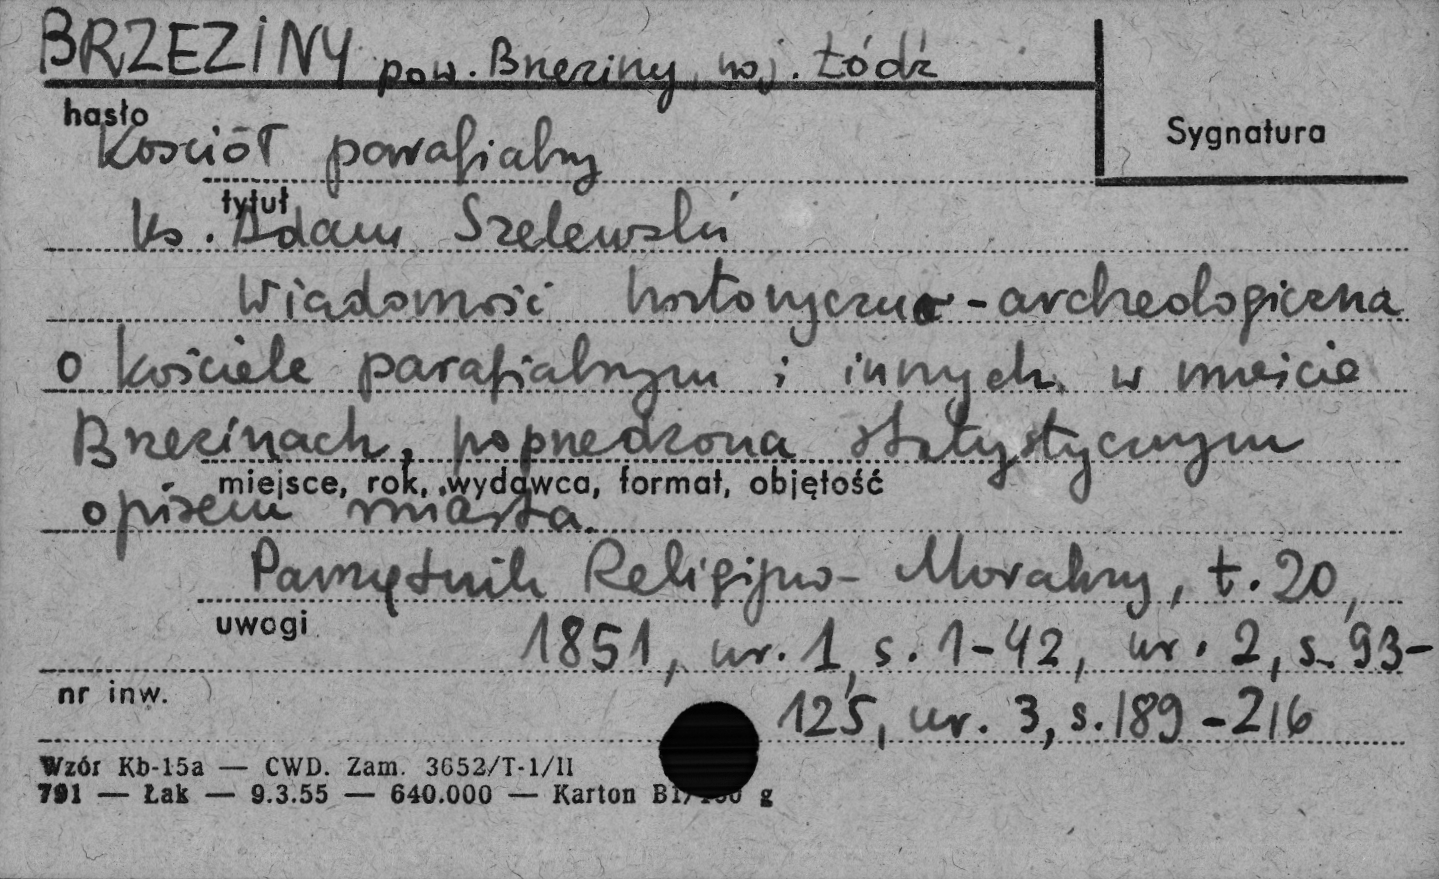 BRZEZINY pow. Brzeziny, woj. Łódź
hasło
Sygnatura
Kościół parafialny
tytuł
ks. Adam Szelewski
Wiadomość historyczno-archeologiczna
o kościele parafialnym i innych w mieście
Brzezinach, poprzedzona statystycznym
miejsce, rok, wydawca, format, objętość
opisem miasta.
Pamiętnik Religijno-Moralny, t. 20,
uwagi
1851, nr. 1, s. 1-42, nr. 2, s. 93-
nr inw.
125, nr. 3, s. 189-216
Wzór Kb-15a — CWD. Zam. 3652/T-1/II
791 — Łak — 9.3.55 — 640.000 — Karton g